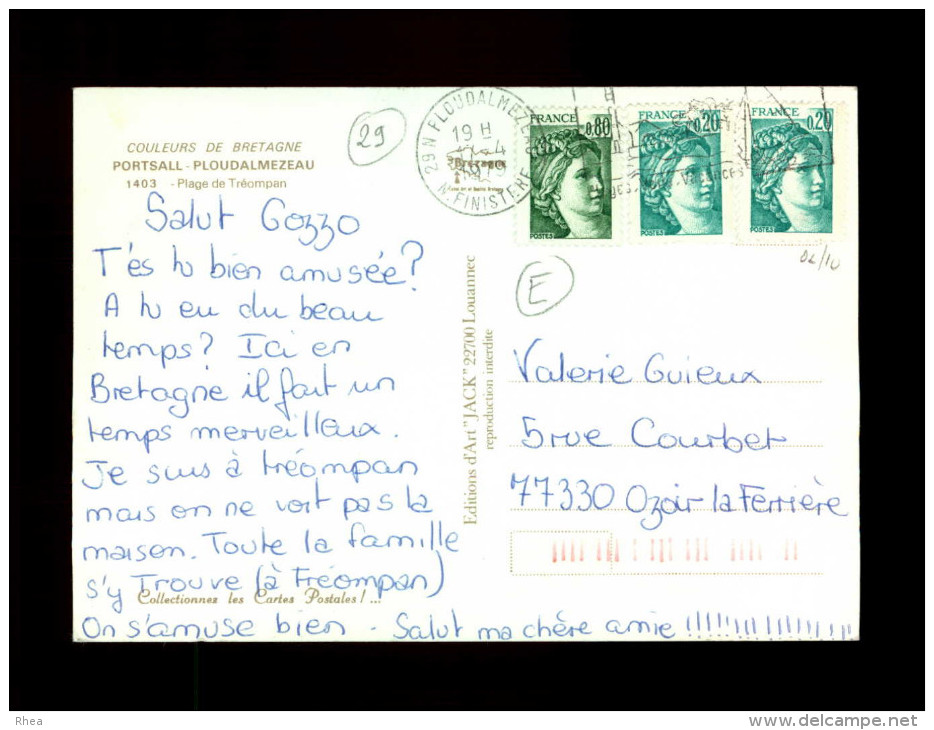 COULEURS DE BRETAGNE
PORTSALL - PLOUDALMEZEAU
1403 - Plage de Tréompan
29
29 N PLOUDALMEZEAU
19 H
1979
N. FINISTERE
Bretagne
FRANCE
0,80
POSTES
FRANCE
0,20
POSTES
FRANCE
0,20
POSTES
E
Salut Gozzo
T'és tu bien amusée?
A tu eu du beau
temps? Ici en
Bretagne il fait un
temps merveilleux.
Je suis à tréompan
mais on ne voit pas la
maison. Toute la famille
s'y Trouve (à Tréompan)
Collectionnez les Cartes Postales!...
On s'amuse bien. Salut ma chère amie !!!!!!!!!!!!!!!!!
Editions d'Art "JACK" 22700 Louannec
reproduction interdite
Valerie Guieux
5 rue Courbet
77330 Ozoir la Ferrière
Rhea
delcampe.net